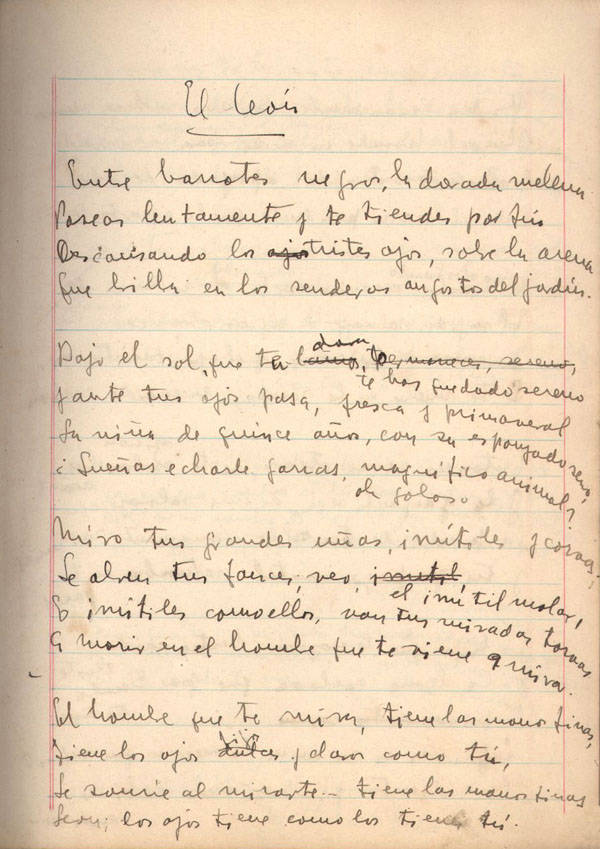 El león
Entre barrotes negros, la dorada melena
Paseas lentamente y te tiendes por fin
Descansando los ojos tristes ojos, sobre la arena
Que brilla en los senderos angostos del jardín.
dora,
Bajo el sol, que te permaneces, sereno,
te has quedado sereno
y ante tus ojos pasa, fresca y primaveral
La niña de quince años, con su esponjado seno,
¿Sueñas echarle garras, magnífico animal?
oh goloso
Miro tus grandes uñas, inútiles y corvas;
Se abren tus fauces, veo, inutil
el inútil molar,
E inútiles como ellos, van tus miradas torvas
A morir en el hombre que te viene a mirar.
El hombre que te mira, tiene las manos finas,
fijos
Tiene los ojos dulces y claros como tú,
Se sonríe al mirarte – tiene las manos finas
León; los ojos tiene como los tienes tú.